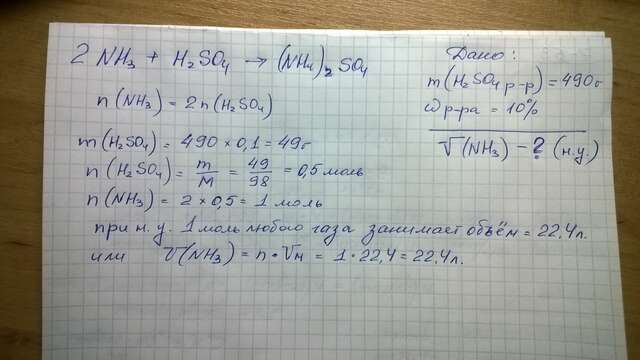 2 NH₃ + H₂SO₄ → (NH₄)₂ SO₄
n(NH₃) = 2n(H₂SO₄)
m(H₂SO₄) = 490 × 0,1 = 49г
n(H₂SO₄) = m/M = 49/98 = 0,5 моль
n(NH₃) = 2 × 0,5 = 1 моль
при н.у. 1 моль любого газа занимает объём = 22,4л.
или V(NH₃) = n · Vм = 1 · 22,4 = 22,4л.
Дано:
m(H₂SO₄ р-р) = 490г
ω р-ра = 10%
V(NH₃) - ? (н.у.)